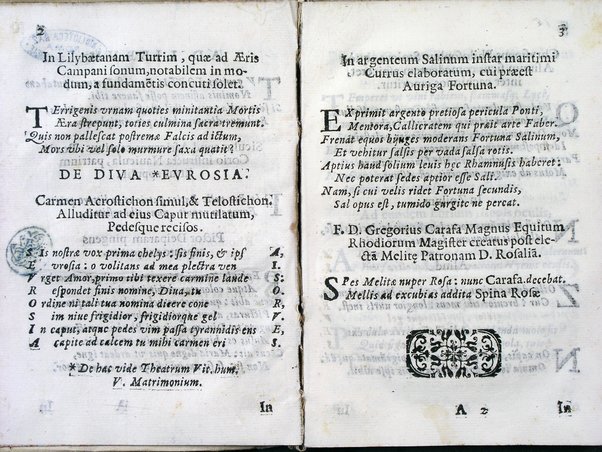 2
In Lilybætanam Turrim, quæ ad Æris
Campani sonum, notabilem in mo-
dum, a fundamētis concuti solet.
TErrigenis vrnam quoties minitantia Mortis
Æra strepunt, toties culmina sacra tremunt.
Quis non pallescat postremæ Falcis ad ictum,
Mors vbi vel solo murmure saxa quatit?
DE DIVA *EVROSIA.
Carmen Acrostichon simul, & Telostichon.
Alluditur ad eius Caput mutilatum,
Pedesque recisos.
SIs nostræ vox prima chelys: sis finis, & ips A,
EVrosia: o volitans ad mea plectra ven I.
VRget Amor, primo tibi texere carmine laude S:
REspondet finis nomine, Diua, tu O.
ORdine ni tali tua nomina dicere cone R
SIm niue frigidior, frigidiorque gel V.
IN caput, atque pedes vim passa tyrannidis ens E,
A capite ad calcem tu mihi carmen eri S.
* De hac vide Theatrum Vit. hum.
V. Matrimonium.
In
3
In argenteum Salinum instar maritimi
Currus elaboratum, cui præest
Auriga Fortuna.
EXprimit argento pretiosa pericula Ponti,
Mentora, Callicratem qui præit arte Faber.
Frenat equos hunges moderans Fortuna Salinum,
Et vehitur salsis per vada salsa rotis.
Aptius haud solium leuis hęc Rhamnusis haberet:
Nec poterat sedes aptior esse Sali.
Nam, si cui velis ridet Fortuna secundis,
Sal opus est, tumido gurgite ne pereat.
F. D. Gregorius Carafa Magnus Equitum
Rhodiorum Magister creatus post ele-
ctā Melitę Patronam D. Rosaliā.
SPes Melitæ nuper Rosa: nunc Carafa decebat.
Mellis ad excubias addita Spina Rosæ
A 2
In